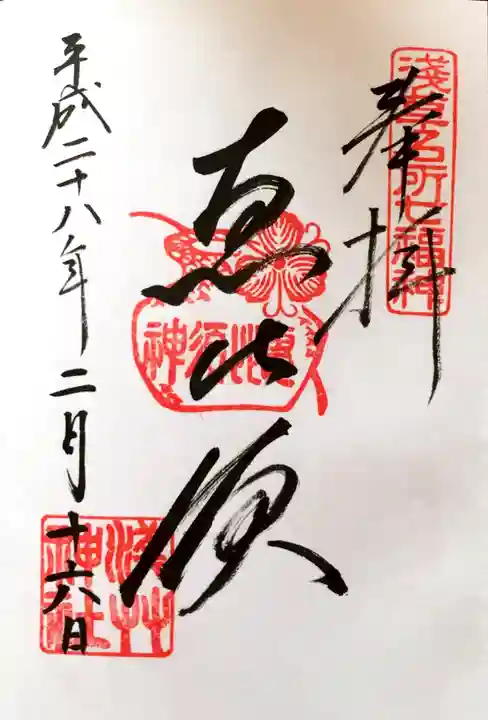 奉拝
淺草名所七福神
恵比須
恵比須神
平成二十八年二月十六日
淺草神社